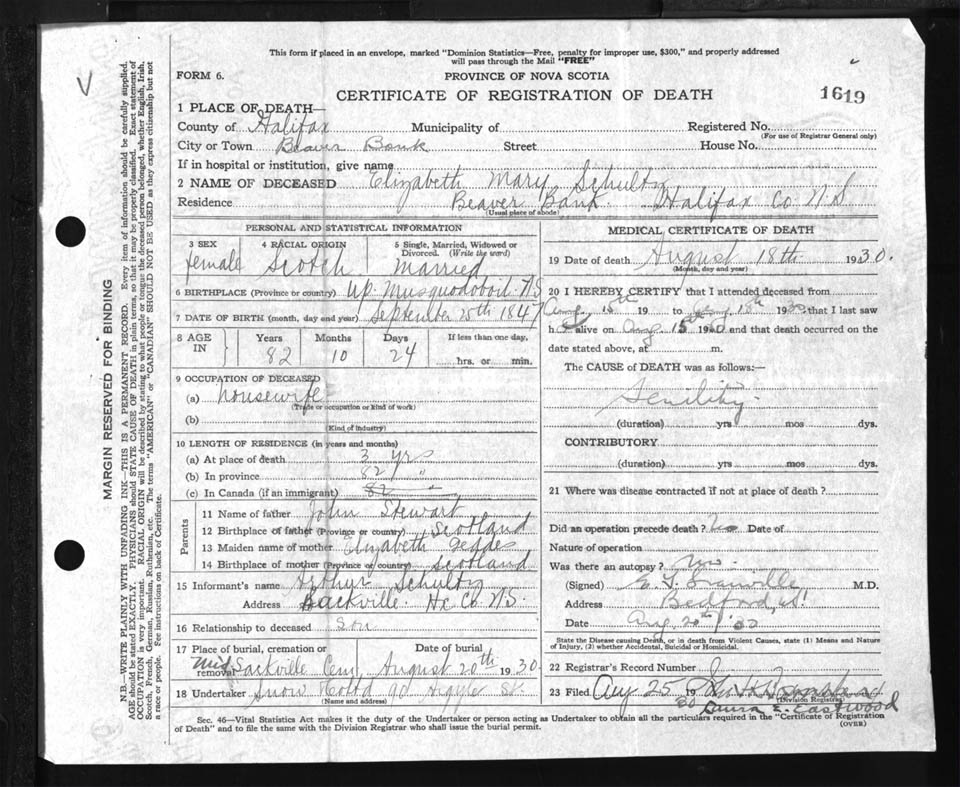 This form if placed in an envelope, marked "Dominion Statistics—Free, penalty for improper use, $300," and properly addressed
will pass through the Mail "FREE"
FORM 6.
PROVINCE OF NOVA SCOTIA
CERTIFICATE OF REGISTRATION OF DEATH
1619
1 PLACE OF DEATH—
County of Halifax Municipality of Registered No.
(For use of Registrar General only)
City or Town Beaver Bank Street House No.
If in hospital or institution, give name
2 NAME OF DECEASED Elizabeth Mary Schultz
Residence Beaver Bank Halifax Co N.S
(Usual place of abode)
PERSONAL AND STATISTICAL INFORMATION
3 SEX 4 RACIAL ORIGIN 5 Single, Married, Widowed or
Divorced. (Write the word)
female Scotch Married
6 BIRTHPLACE (Province or country) Up. Musquodoboit N.S
7 DATE OF BIRTH (month, day end year) September 25th 1847
8 AGE IN Years Months Days If less than one day,
82 10 24 hrs. or min.
9 OCCUPATION OF DECEASED
(a) housewife
(Trade or occupation or kind of work)
(b)
(Kind of industry)
10 LENGTH OF RESIDENCE (in years and months)
(a) At place of death 3 yrs
(b) In province 82 "
(c) In Canada (if an immigrant) 82 "
Parents
11 Name of father John Stewart
12 Birthplace of father (Province or country) Scotland
13 Maiden name of mother Elizabeth Geddes
14 Birthplace of mother (Province or country) Scotland
15 Informant's name Arthur Schultz
Address Sackville. Hx Co N.S.
16 Relationship to deceased son
17 Place of burial, cremation or removal Date of burial
Mid Sackville Cem August 20th 1930
18 Undertaker Snow 90 Argyle St.
(Name and address)
MEDICAL CERTIFICATE OF DEATH
19 Date of death August 18th 1930.
(Month, day and year)
20 I HEREBY CERTIFY that I attended deceased from
Aug 15th 19 to Aug 18th 1930 that I last saw
h alive on Aug 15 1930 and that death occurred on the
date stated above, at m.
The CAUSE of DEATH was as follows:—
Senility
(duration) yrs mos dys.
CONTRIBUTORY
(duration) yrs mos dys.
21 Where was disease contracted if not at place of death?
Did an operation precede death? No Date of
Nature of operation
Was there an autopsy? No.
(Signed) M.D.
Address Bedford, N.S.
Date Aug. 20th/30
State the Disease causing Death, or in death from Violent Causes, state (1) Means and Nature
of Injury, (2) whether Accidental, Suicidal or Homicidal.
22 Registrar's Record Number
23 Filed Aug 25 1930
(Division Registrar)
Laura E. Eastwood
Sec. 46—Vital Statistics Act makes it the duty of the Undertaker or person acting as Undertaker to obtain all the particulars required in the "Certificate of Registration
of Death" and to file the same with the Division Registrar who shall issue the burial permit.
(OVER)
MARGIN RESERVED FOR BINDING
N.B.—WRITE PLAINLY WITH UNFADING INK—THIS IS A PERMANENT RECORD. Every item of information should be carefully supplied.
AGE should be stated EXACTLY. PHYSICIANS should STATE CAUSE OF DEATH in plain terms, so that it may be properly classified. Exact statement of
OCCUPATION is very important. RACIAL ORIGIN will be described by stating to what people or tongue the deceased person belonged, whether English, Irish,
Scotch, French, German, Russian, Ruthenian, etc. The terms "AMERICAN" or "CANADIAN" SHOULD NOT BE USED as they express citizenship but not
a race or people. Fee instructions on back of Certificate.